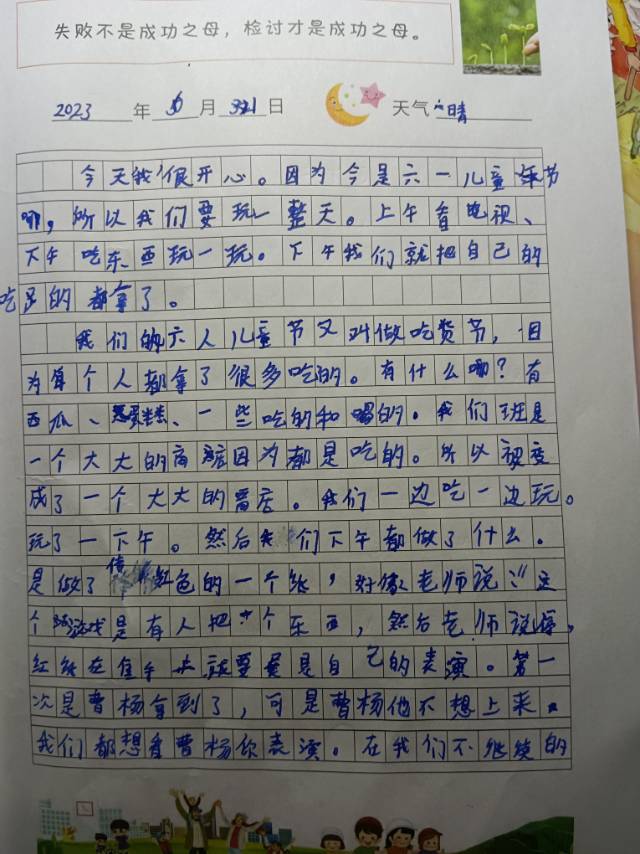 失败不是成功之母，检讨才是成功之母。
2023年 月 日 天气 晴
今天我很开心。因为今是六一儿童年节
哪，所以我们要玩一整天。上午看电视、
下午吃东西玩一玩。下午我们就把自己的
吃的都拿了。
我们的六人儿童节又叫做吃货节，因
为每个人都拿了很多吃的。有什么哪？有
西瓜、蛋糕、一些吃的和喝的。我们班是
一个大大的商店因为都是吃的。所以被变
成了一个大大的商店。我们一边吃一边玩。
玩了一下午。然后我们下午都做了什么。
是做了传红色的一个纸，对老师说：“这
个游戏是有人把个东西，然后老师说停，
红纸在谁手上就要是自己的表演。第一
次是曹杨拿到了，可是曹杨他不想上来。
我们都想看曹杨你表演。在我们不继续的